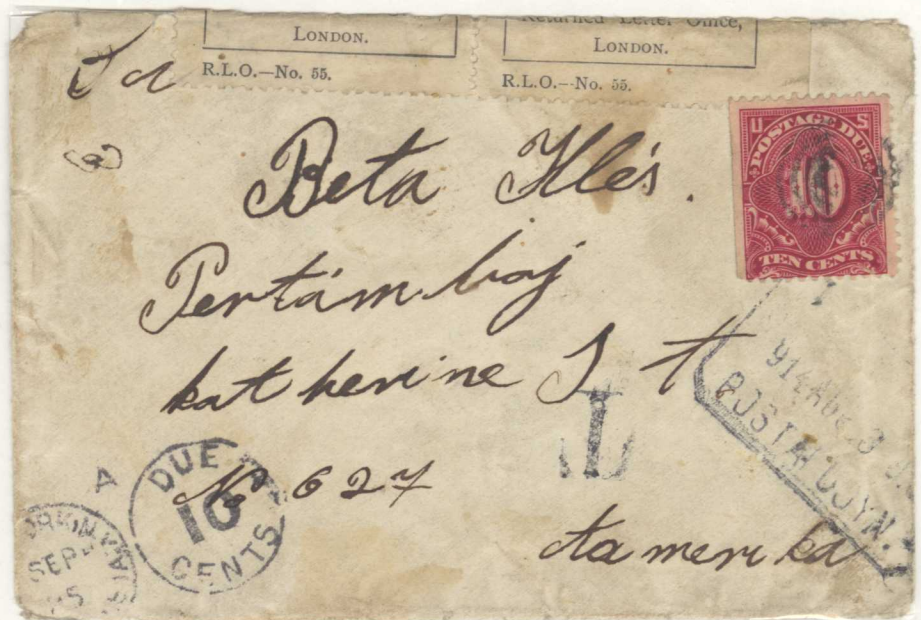 LONDON.
R.L.O.—No. 55.
Returned Letter Office,
LONDON.
R.L.O.—No. 55.
U S
POSTAGE DUE
10
TEN CENTS
Beta Kles.
Pertámboj
katherine S t
No 627
Tamerika
T
A
DUE
10
CENTS
SEP